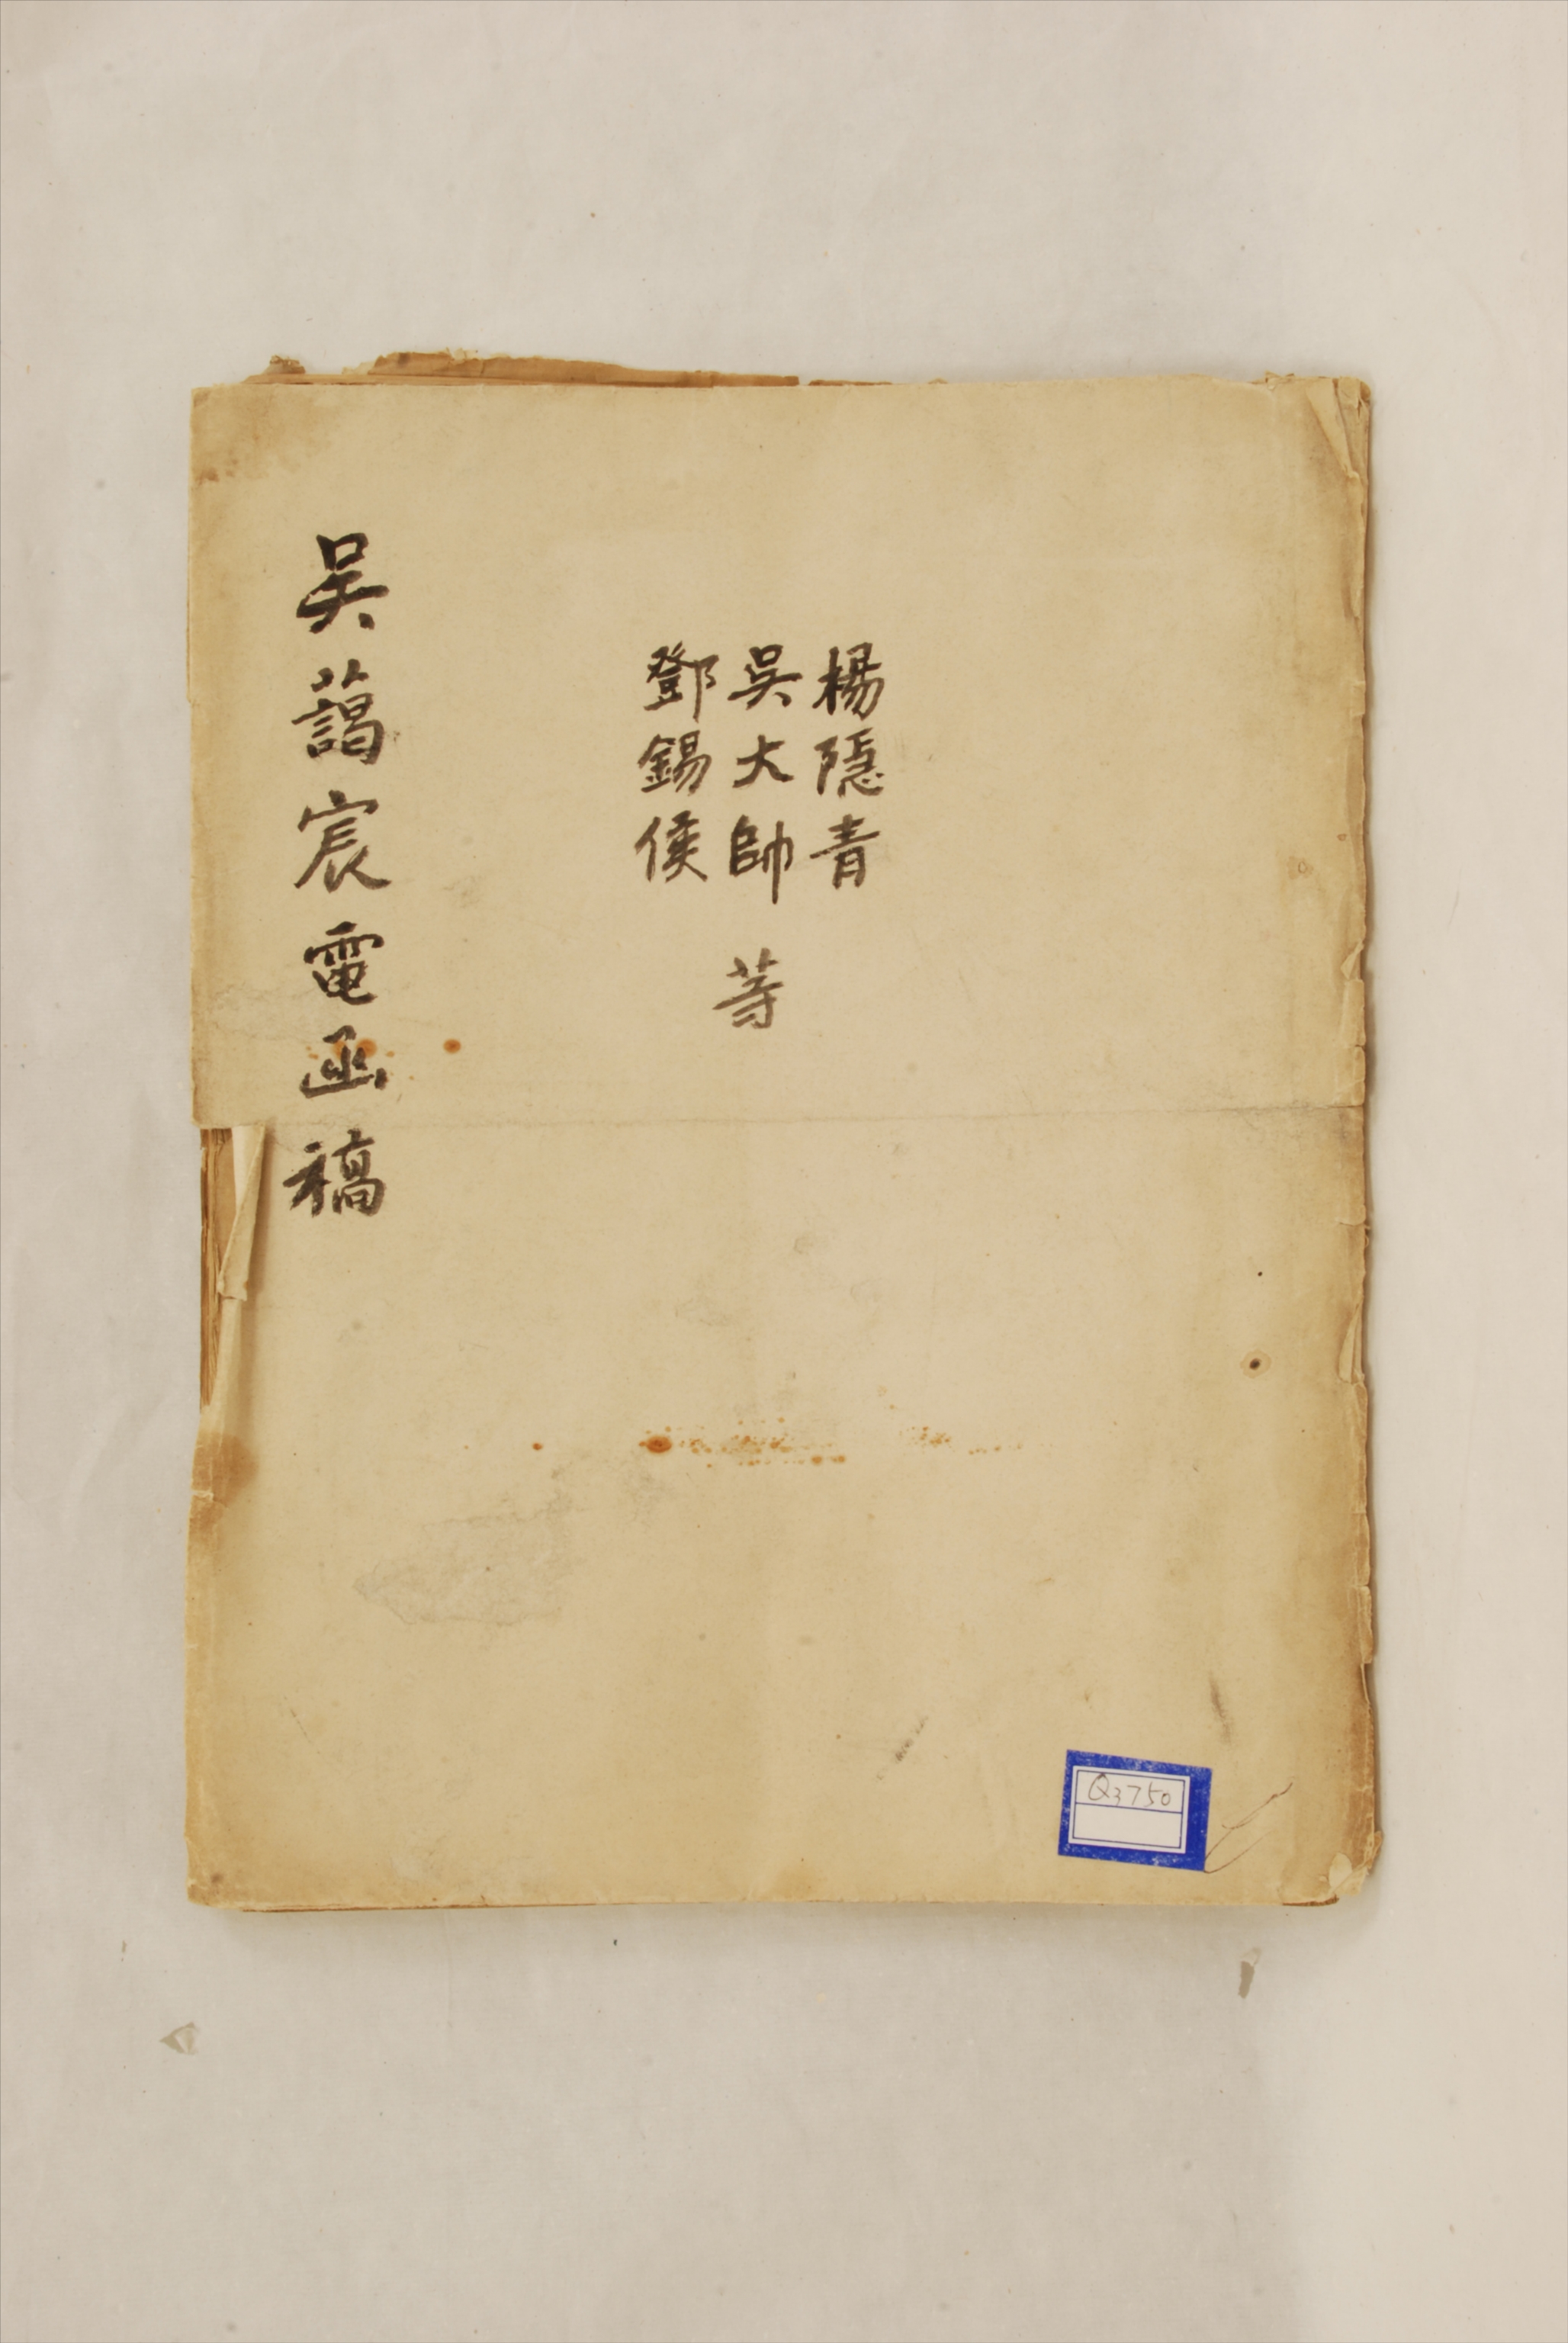 楊隱青
吳大帥
鄧錫侯
等
吳藹宸電函稿
Q3750